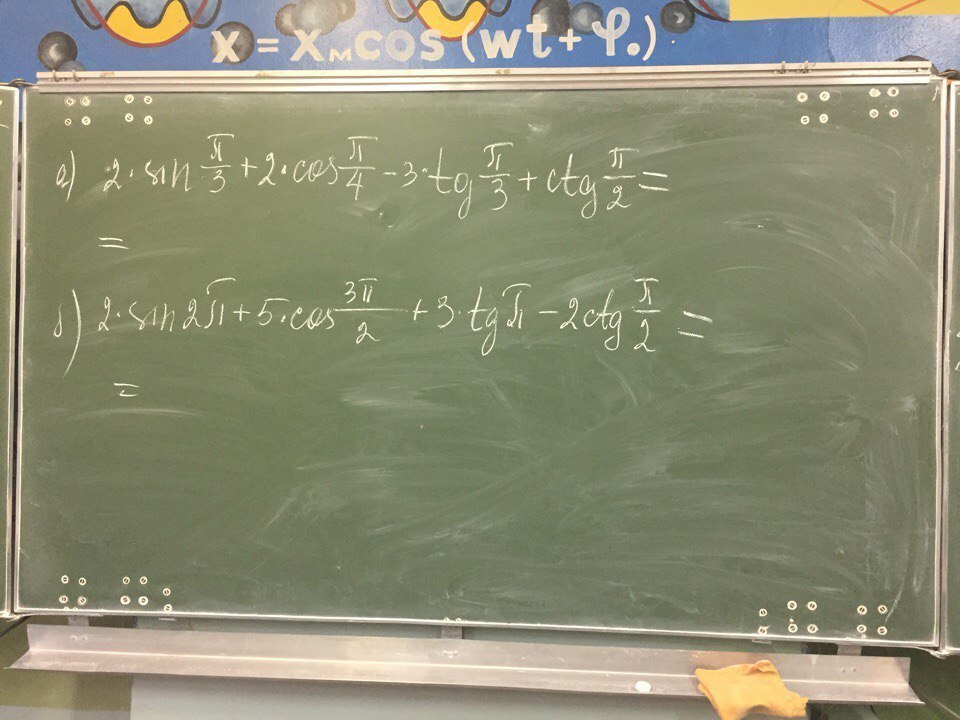 x = xмcos (wt + φ₀)
а) 2·sin π/3 + 2·cos π/4 − 3·tg π/3 + ctg π/2 =
=
б) 2·sin 2π + 5·cos 3π/2 + 3·tg π − 2ctg π/2 =
=